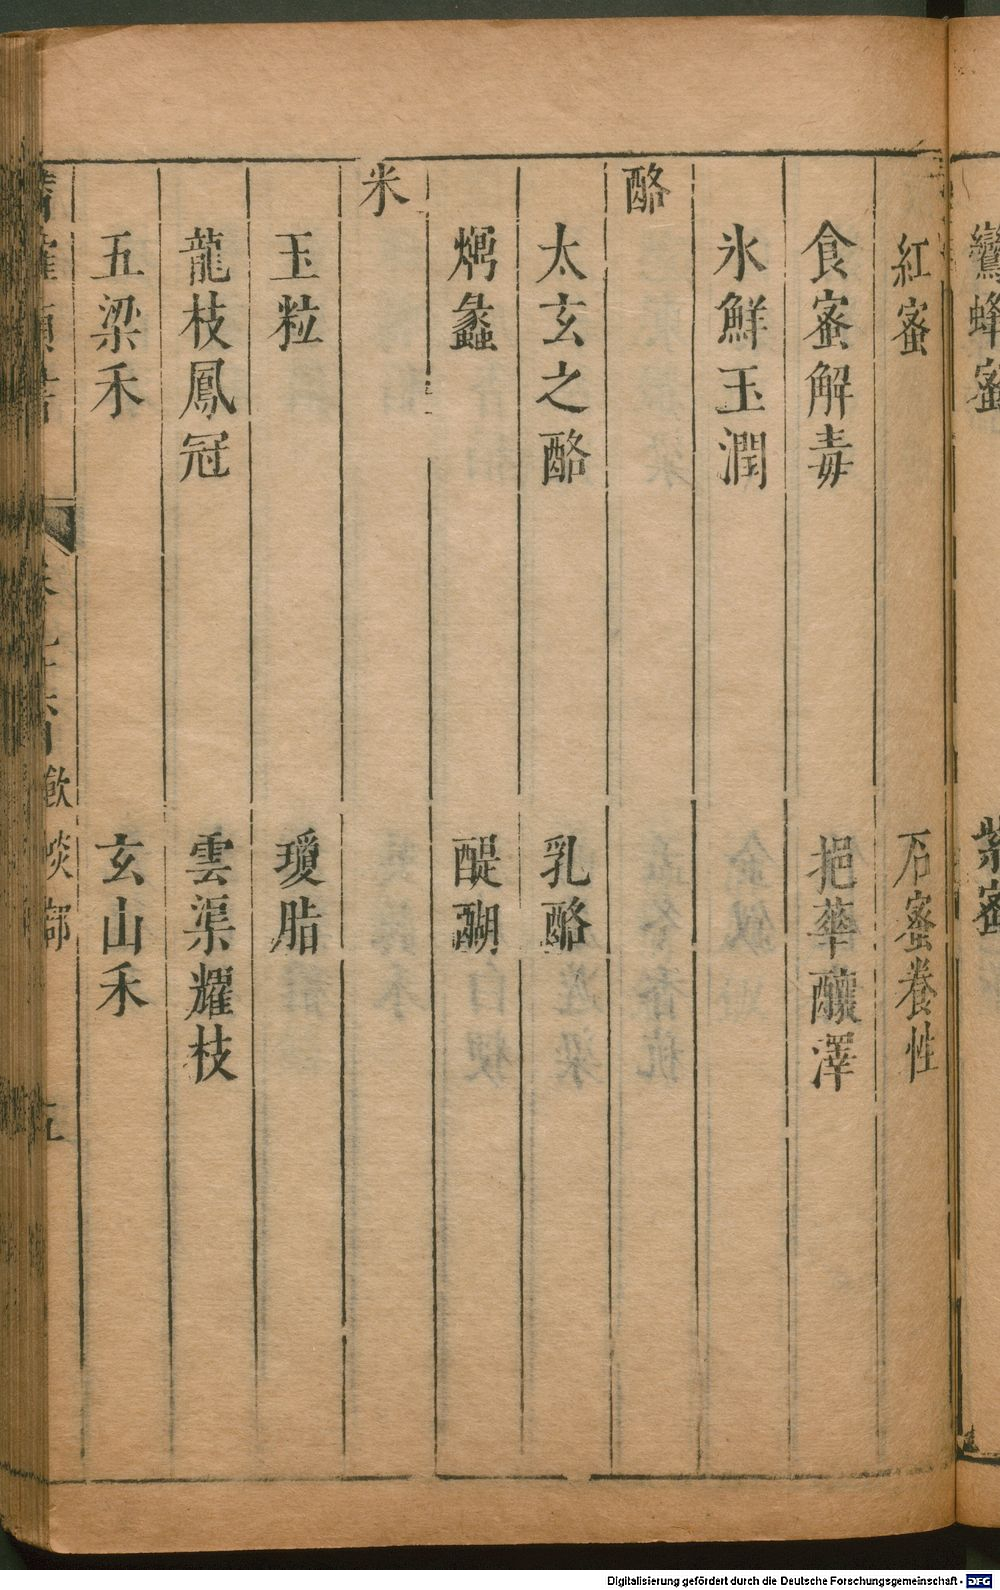 鸞蜂蜜
紫蜜
紅蜜
石蜜養性
食蜜解毒
挹華釀澤
氷鮮玉潤
酪
太玄之酪
乳酪
蠡
醍醐
米
玉粒
瓊脂
龍枝鳳冠
雲渠耀枝
五梁禾
玄山禾
五
Digitalisierung gefördert durch die Deutsche Forschungsgemeinschaft - DFG